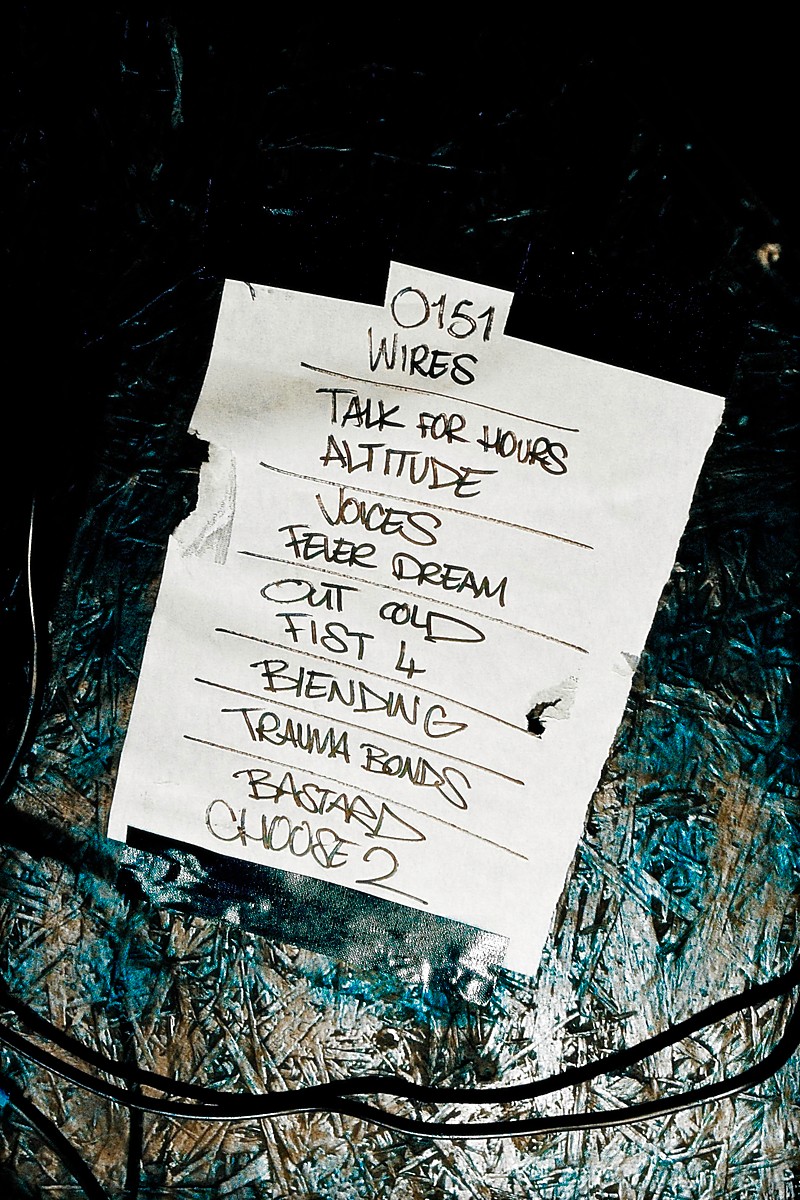 0151
WIRES
TALK FOR HOURS
ALTITUDE
VOICES
FEVER DREAM
OUT COLD
FIST 4
BLENDING
TRAUMA BONDS
BASTARD
CHOOSE 2